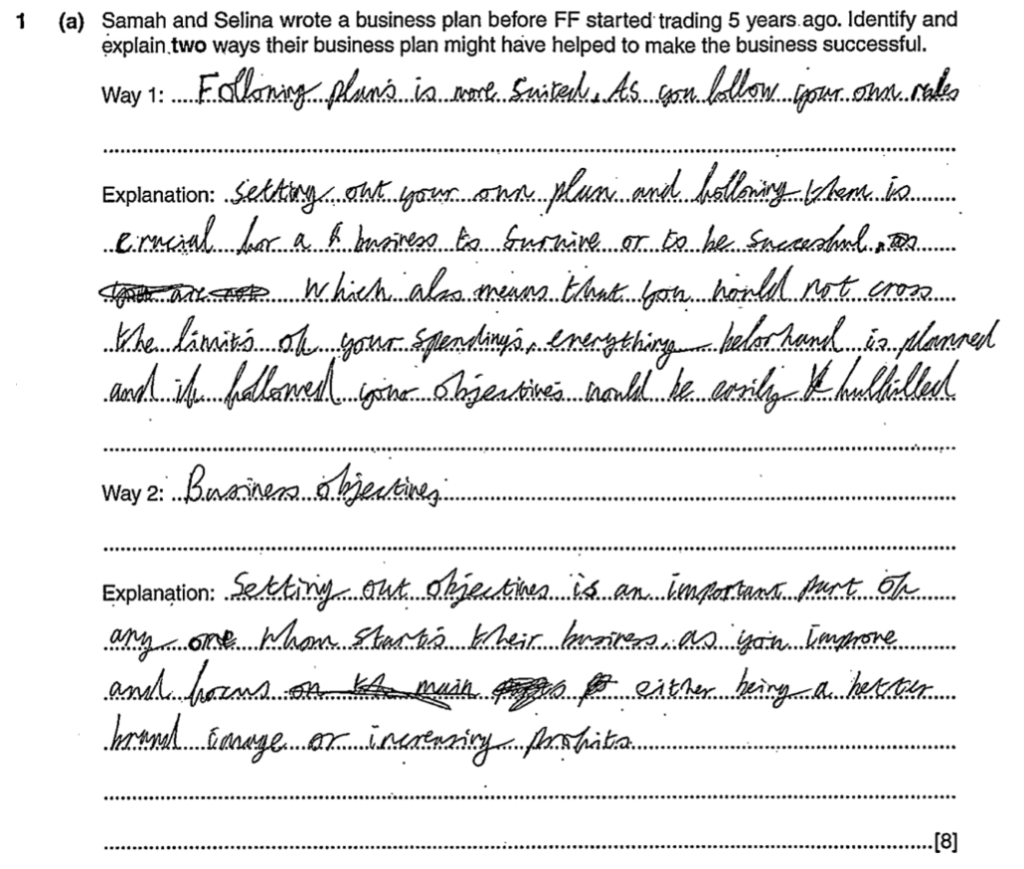 1 (a) Samah and Selina wrote a business plan before FF started trading 5 years ago. Identify and
explain two ways their business plan might have helped to make the business successful.
Way 1: Following plans is more suited. As you follow your own rules
Explanation: Setting out your own plan and following them is
crucial for a business to survive or to be successful,
Which also means that you would not cross
the limits of your spendings, everything beforhand is planned
and if followed your objectives would be easily fulfilled
Way 2: Business objectives
Explanation: Setting out objectives is an important part of
any one whom starts their business, as you improve
and focus on either being a better
brand image or increasing profits
[8]